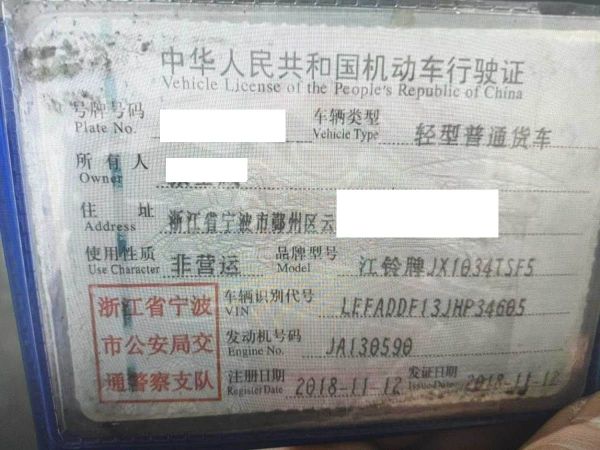 中华人民共和国机动车行驶证
Vehicle License of the People's Republic of China
号牌号码
Plate No.
车辆类型 轻型普通货车
Vehicle Type
所有人
Owner
住址 浙江省宁波市鄞州区云
Address
使用性质 非营运 品牌型号 江铃牌JX1034TSF5
Use Character Model
浙江省宁波
市公安局交
通警察支队
车辆识别代号 LEFADDF13JHP34605
VIN
发动机号码 JA130590
Engine No.
注册日期 2018-11-12 发证日期 2018-11-12
Register Date Issue Date